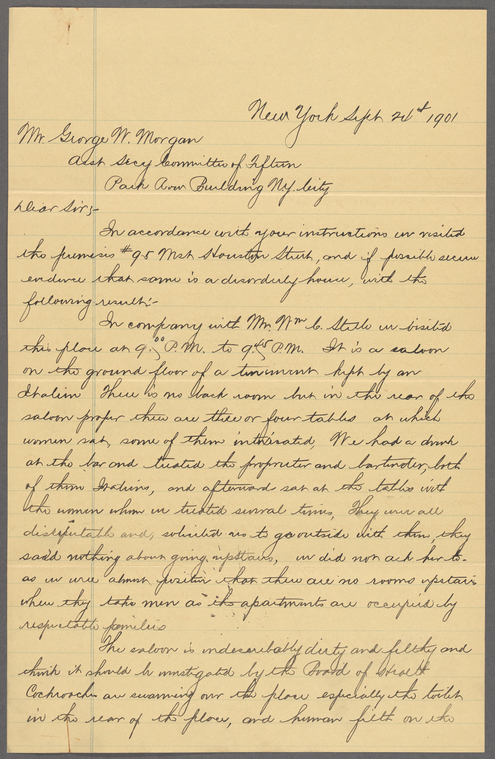 New York Sept 24st 1901
Mr. George W. Morgan
Asst Secy Committee of Fifteen
Park Row Building N.Y. City
Dear Sir;-
In accordance with your instructions we visited
the premises #95 West Houston Street, and if possible secure
evidence that same is a disorderly house, with the
following result:-
In company with Mr. Wm C. Steele we visited
this place at 9.00 P.M. to 9.45 P.M. It is a saloon
on the ground floor of a tenement kept by an
Italian There is no back room but in the rear of the
saloon proper there are three or four tables at which
women sat, some of them intoxicated, We had a drink
at the bar and treated the proprietor and bartender, both
of them Italians, and afterward sat at the tables with
the women whom we treated several times, They were all
disreputable and, solicited us to go outside with them, they
said nothing about going upstairs, we did not ask her to-
as we were almost positive that there are no rooms upstairs
where they take men as the apartments are occupied by
respectable families
The saloon is indescribably dirty and filthy and
think it should be investigated by the Board of Health
Cockroach are swarming over the place especially the toilet
in the rear of the place, and human filth on the